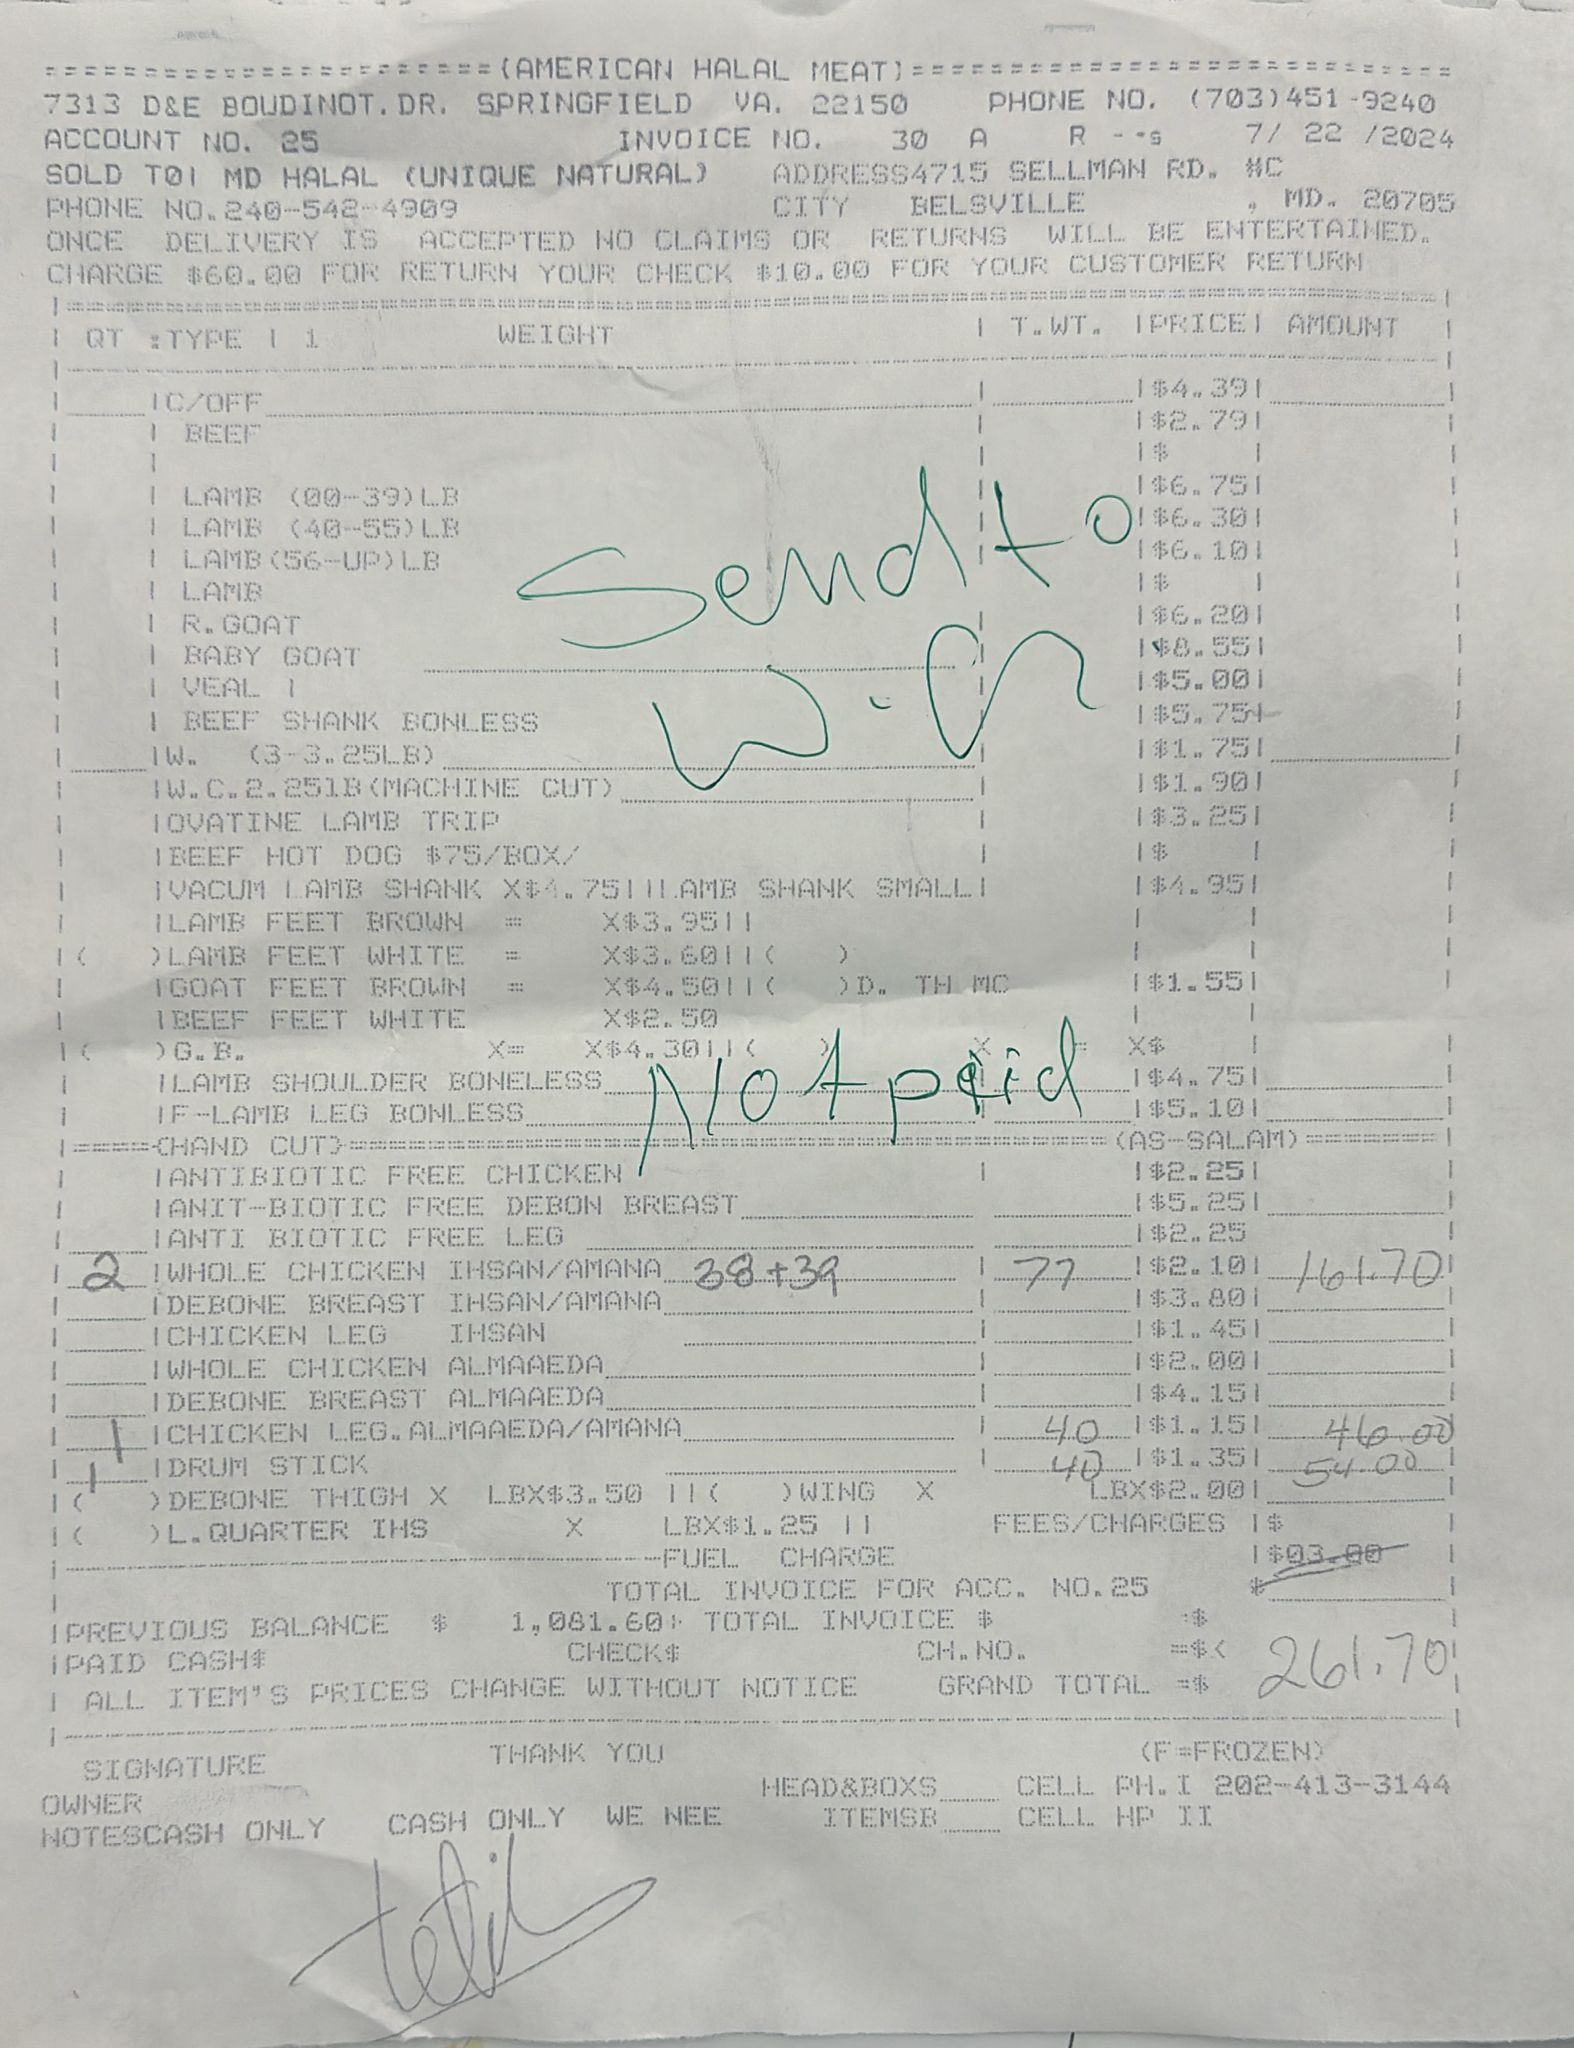 ========================(AMERICAN HALAL MEAT)============================
7313 D&E BOUDINOT.DR. SPRINGFIELD VA. 22150 PHONE NO. (703)451-9240
ACCOUNT NO. 25 INVOICE NO. 30 A R --s 7/ 22 /2024
SOLD TO| MD HALAL (UNIQUE NATURAL) ADDRESS4715 SELLMAN RD. #C
PHONE NO.240-542-4909 CITY BELSVILLE , MD. 20705
ONCE DELIVERY IS ACCEPTED NO CLAIMS OR RETURNS WILL BE ENTERTAINED.
CHARGE $60.00 FOR RETURN YOUR CHECK $10.00 FOR YOUR CUSTOMER RETURN
QT :TYPE | 1 WEIGHT | T.WT. |PRICE| AMOUNT
|C/OFF |$4.39|
| BEEF |$2.79|
|$ |
| LAMB (00-39)LB |$6.75|
| LAMB (40-55)LB |$6.30|
| LAMB(56-UP)LB |$6.10|
Send to
| LAMB |$ |
| R.GOAT |$6.20|
| BABY GOAT |$8.55|
| VEAL | |$5.00|
| BEEF SHANK BONLESS |$5.75|
|W. (3-3.25LB) |$1.75|
|W.C.2.25lB(MACHINE CUT) |$1.90|
|OVATINE LAMB TRIP |$3.25|
|BEEF HOT DOG $75/BOX/ |$ |
|VACUM LAMB SHANK X$4.75|||LAMB SHANK SMALL| |$4.95|
|LAMB FEET BROWN = X$3.95||
|( )LAMB FEET WHITE = X$3.60||( )
|GOAT FEET BROWN = X$4.50||( )D. TH MC |$1.55|
|BEEF FEET WHITE X$2.50
|( )G.B. X= X$4.30||( ) X = X$ |
Not paid
|LAMB SHOULDER BONELESS |$4.75|
|F-LAMB LEG BONLESS |$5.10|
|=====(HAND CUT)========================================(AS-SALAM)=======|
|ANTIBIOTIC FREE CHICKEN |$2.25|
|ANIT-BIOTIC FREE DEBON BREAST |$5.25|
|ANTI BIOTIC FREE LEG |$2.25
2 |WHOLE CHICKEN IHSAN/AMANA 38+39 | 77 |$2.10| 161.70
|DEBONE BREAST IHSAN/AMANA |$3.80|
|CHICKEN LEG IHSAN |$1.45|
|WHOLE CHICKEN ALMAAEDA |$2.00|
|DEBONE BREAST ALMAAEDA |$4.15|
1 |CHICKEN LEG.ALMAAEDA/AMANA | 40 |$1.15| 46.00
1 |DRUM STICK | 40 |$1.35| 54.00
|( )DEBONE THIGH X LBX$3.50 ||( )WING X LBX$2.00|
|( )L.QUARTER IHS X LBX$1.25 || FEES/CHARGES |$
FUEL CHARGE |$03.00
TOTAL INVOICE FOR ACC. NO.25 $
|PREVIOUS BALANCE $ 1,081.60+ TOTAL INVOICE $ :$
|PAID CASH$ CHECK$ CH.NO. =$<
| ALL ITEM'S PRICES CHANGE WITHOUT NOTICE GRAND TOTAL =$ 261.70
SIGNATURE THANK YOU (F=FROZEN)
OWNER HEAD&BOXS CELL PH.I 202-413-3144
NOTESCASH ONLY CASH ONLY WE NEE ITEMSB CELL HP II